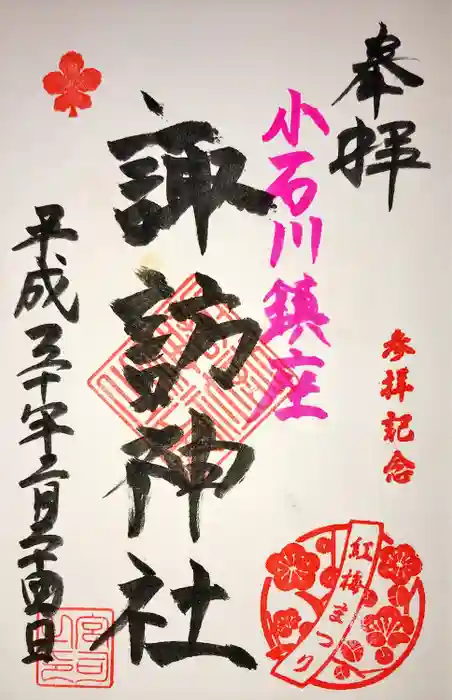 奉拝
参拝記念
小石川鎮座
諏訪神社
平成三十年二月二十四日
紅梅まつり
宮司之印